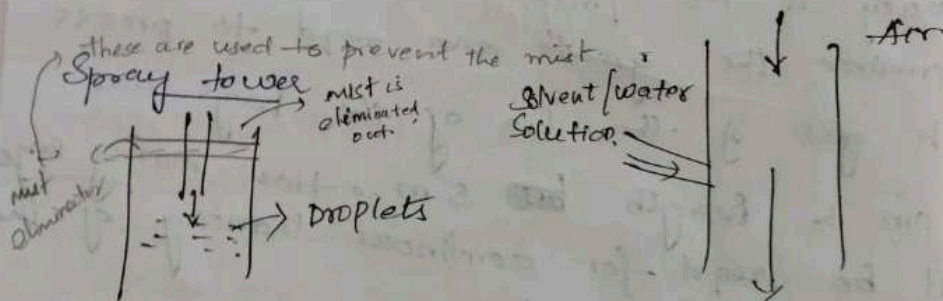 these are used to prevent the mist
Spray tower
mist is
eliminated
out.
mist
eliminator
Droplets
Solvent/water
Solution.